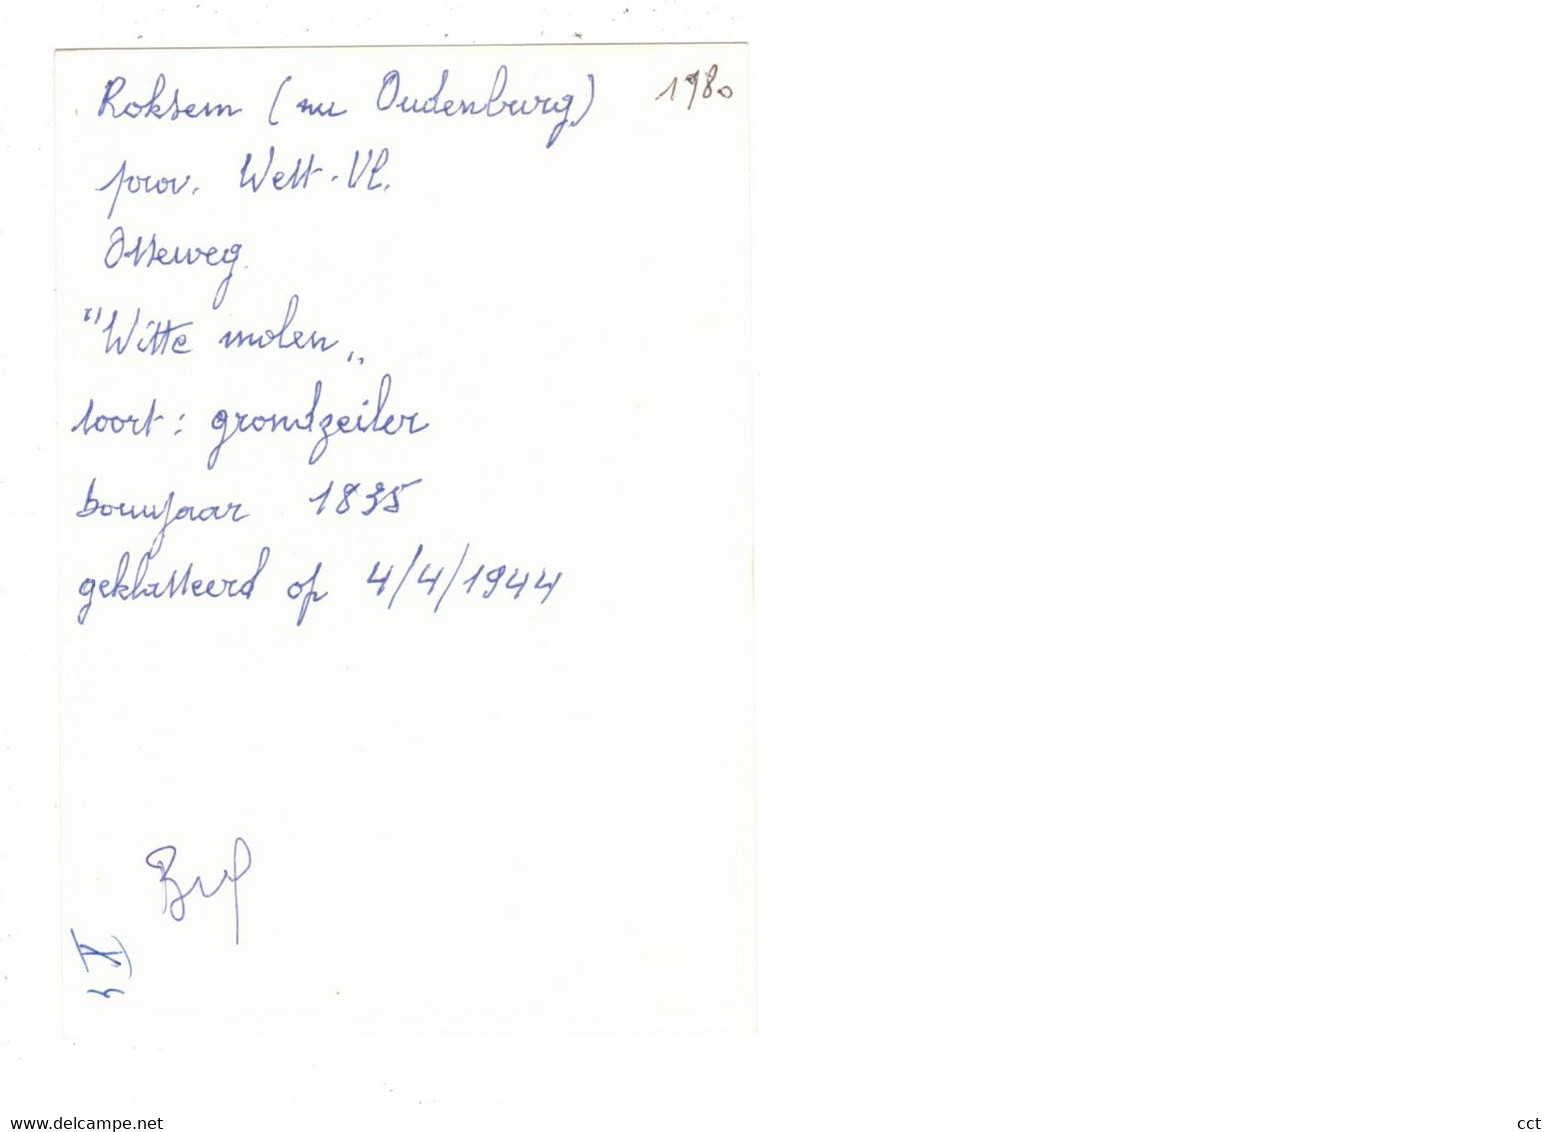 Roksem (nu Oudenburg) 1980
prov. West-Vl.
Osseweg
"Witte molen„
soort: grondzeiler
bouwjaar 1835
geklasseerd op 4/4/1944
www.delcampe.net
cct